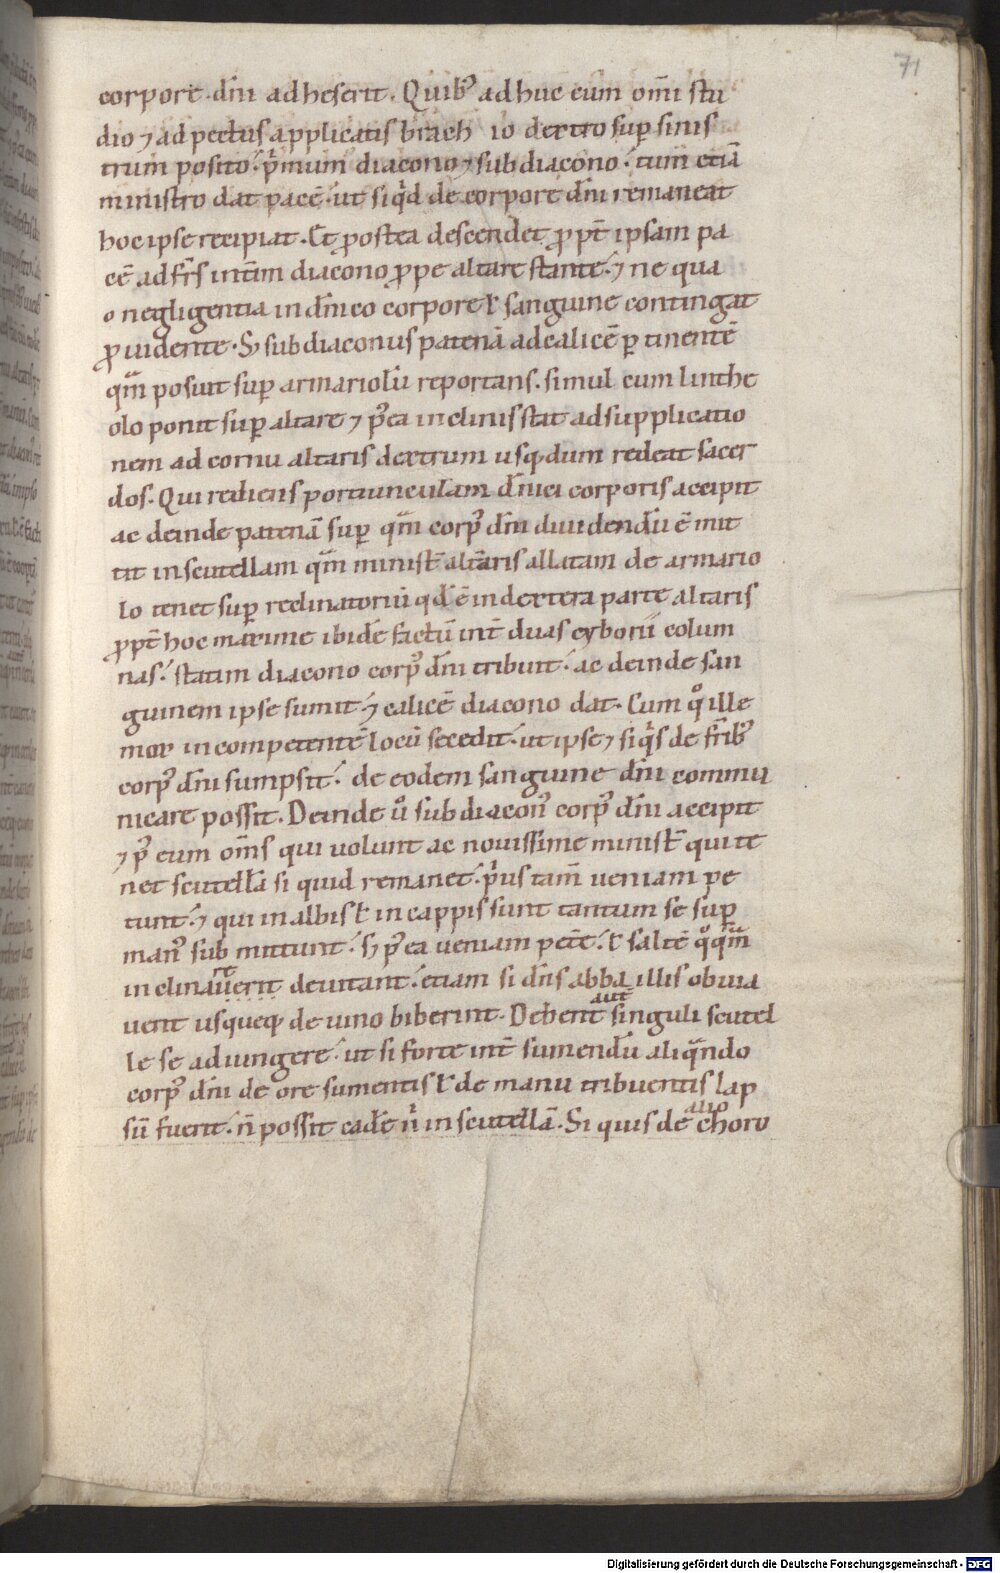 71
corpore dn̄i adheserit. Quib᷒ adhuc cum om̄i stu
dio ⁊ ad pectus applicatis brach io dextro sup̲ sinis
trum posito. p̍mum diacono ⁊ subdiacono. tum etiā
ministro dat pacē. ut siq̍d de corpore dn̄i remaneat
hoc ipse recipiat. Et ꝓstea descendet ꝓpt̄ ipsam pa
cē ad fr̄s int̄am diacono ꝓpe altare stante. ⁊ ne qua
o negligentia in dn̄ico corpore ł sanguine contingat
ꝓuidente. Sꝫ subdiaconus patenā ad calicē ꝑtinentē
qᷓm posuit sup̲ armariolū reportans. simul cum linthe
olo ponit sup̲ altare ⁊ p᷒ea inclinis stat ad supplicatio
nem ad cornu altaris dextrum usq; dum redeat sacer
dos. Qui rediens portiunculam dn̄ici corporis accipit
ac deinde patenā sup̲ qᷓm corp᷒ dn̄i diuidendū ē mit
tit in scutellam qᷓm minist̄ altaris allatam de armario
lo tenet sup̲ reclinatoriū qd̄ ē in dextera parte altaris
ꝓpt̄ hoc maxime ibidē factū int̄ duas cyborii colum
nas. statim diacono corp᷒ dn̄i tribuit. ac deinde san
guinem ipse sumit ⁊ calicē diacono dat. Cum qͦ ille
mox in competentē locū secedit. ut ipse ⁊ siq̍s de fr̄ib᷒
corp᷒ dn̄i sumpsit. de eodem sanguine dn̄i commu
nicare possit. Deinde uͦ subdiacon᷒ corp᷒ dn̄i accipit
⁊ p᷒ eum om̄s qui uolunt ac nouissime minist̄ qui te
net scutellā si quid remanet. p̍us tam̄ ueniam pe
tunt. ⁊ qui in albis ł in cappis sunt tantum se sup̲
man᷒ submittunt. sꝫ p᷒ea ueniam petē. ł saltē qͦqᷓm
re
inclinauerit deuitant. etiam si dn̄s abba illis obuia
uerit usqueqų de uino biberint. Debent singuli scutel
aut̄
le se adiungere. ut si forte int̄ sumendū aliqᷓndo
corp᷒ dn̄i de ore sumentis ł de manu tribuentis lap
sū fuerit. n̄ possit cadē n̍ in scutellā. Si quis de choro
alio
Digitalisierung gefördert durch die Deutsche Forschungsgemeinschaft - DFG